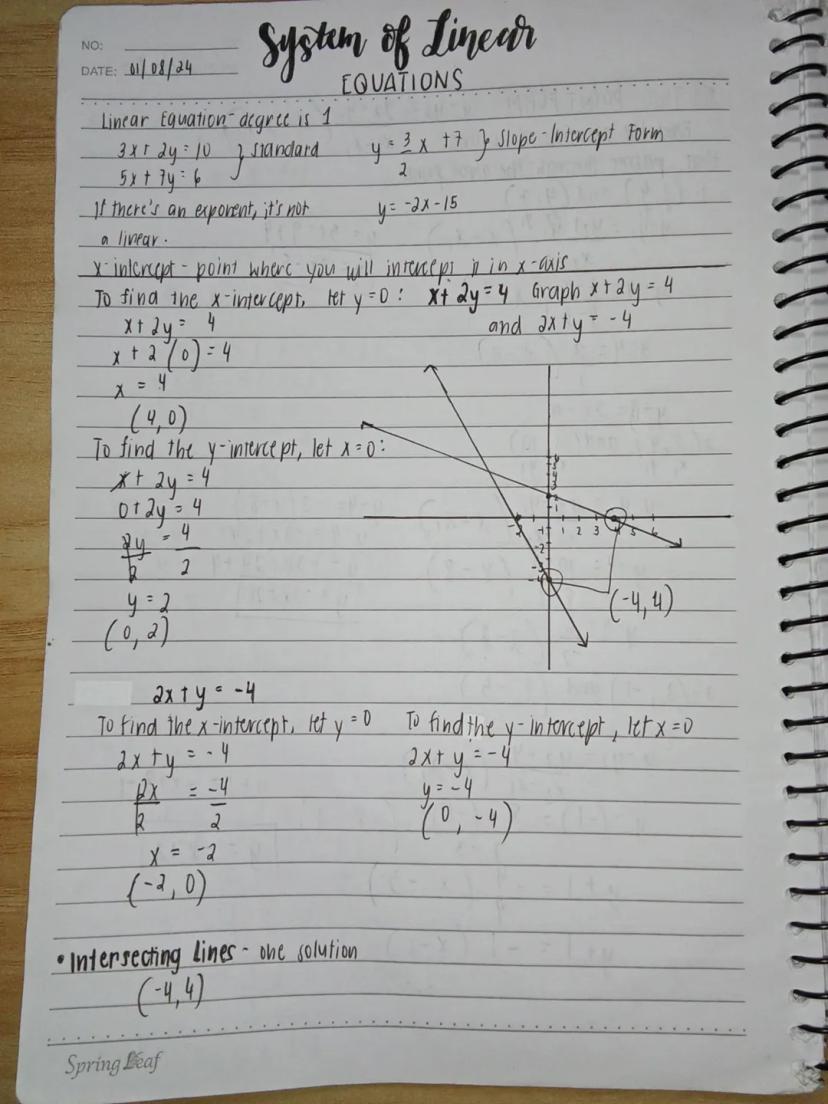 System of Linear
NO:
DATE: 01/08/24
EQUATIONS
Linear Equation - degree is 1
3x + 2y = 10 } standard
5x + 7y = 6
y = 3/2 x + 7 } Slope-Intercept Form
If there's an exponent, it's not
a linear.
y = -2x - 15
x-intercept - point where you will intercept it in x-axis
To find the x-intercept, let y = 0 : x + 2y = 4
Graph x + 2y = 4
and 2x + y = -4
x + 2y = 4
x + 2 (0) = 4
x = 4
(4, 0)
To find the y-intercept, let x = 0 :
x + 2y = 4
0 + 2y = 4
2y/2 = 4/2
y = 2
(0, 2)
6
5
4
3
1
-2 -1 1 2 3 4 5 6
-2
-3
-4
(-4, 4)
2x + y = -4
To find the x-intercept, let y = 0
2x + y = -4
2x/2 = -4/2
x = -2
(-2, 0)
To find the y-intercept, let x = 0
2x + y = -4
y = -4
(0, -4)
• Intersecting lines - one solution
(-4, 4)
Spring Leaf